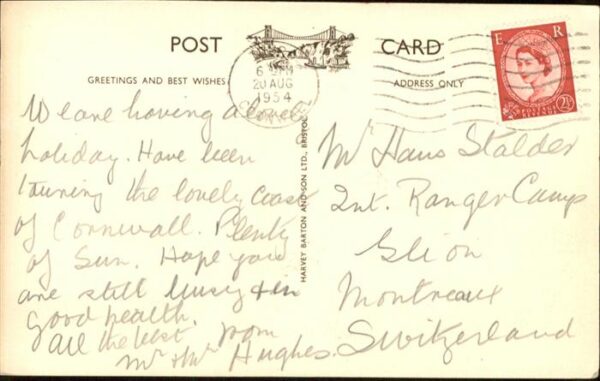 POST CARD
GREETINGS AND BEST WISHES
ADDRESS ONLY
E R
2½
6 PM
20 AUG
1954
HARVEY BARTON AND SON LTD., BRISTOL
We are having a lovely
holiday. Have been
touring the lovely Coast
of Cornwall. Plenty
of Sun. Hope you
are still busy & in
good health.
All the best from
Mr & Mrs Hughes.
Mr Hans Stalder
Int. Ranger Camp
Glion
Montreaux
Switzerland